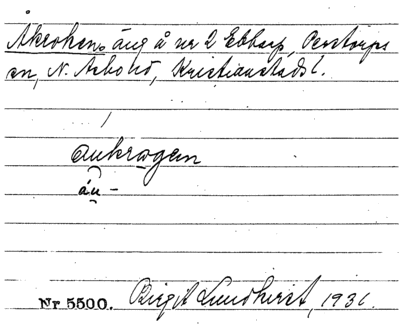 Åkroken, äng å nr 2 Ebbarp, Perstorps
sn, N. Åsbo hd, Kristianstads l.
aukrogen
áu –
Nr 5500. Birgit Lundqvist, 1931.